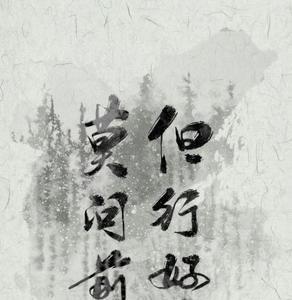 但行好
莫问前